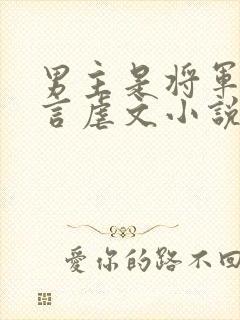 男主是将軍
言虐文小說
愛你的路不回